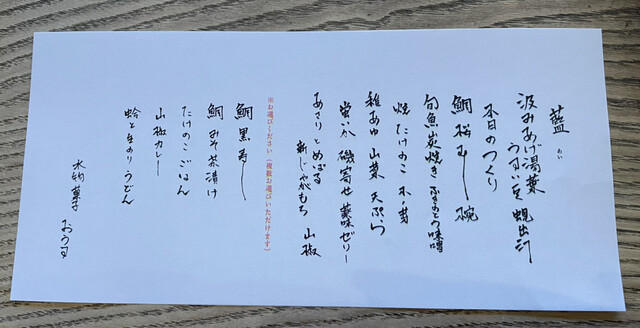 藍
あい
汲みあげ湯葉
うすい豆 蜆出汁
本日のつくり
鯛桜むし 椀
旬魚炭焼き ふきのとう味噌
焼たけのこ 木の芽
稚あゆ 山菜 天ぷら
蛍いか 磯寄せ 薬味ゼリー
あさりとめばる
新じゃがもち 山椒
※お選びください(複数お選びいただけます)
鯛黒寿し
鯛みそ茶漬け
たけのこごはん
山椒カレー
蛤と生のりうどん
水物 菓子 おうす